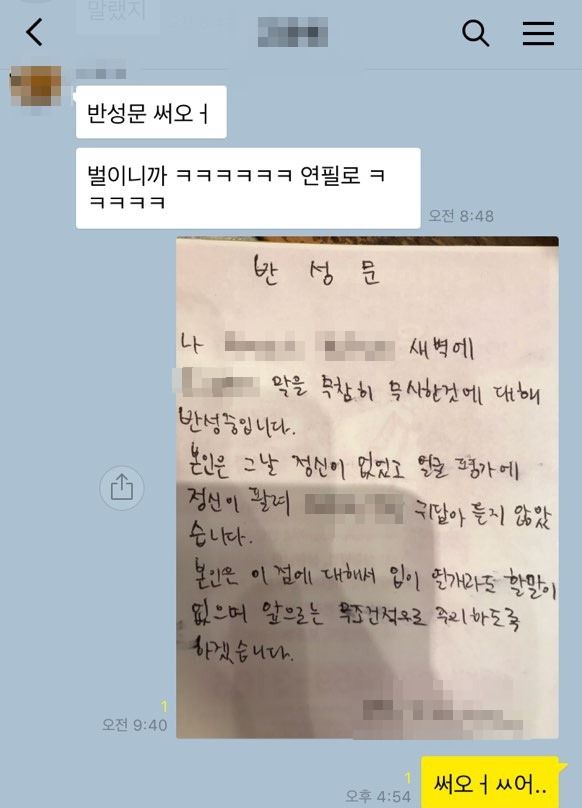 말랬지
반성문 써오ㅓ
벌이니까 ㅋㅋㅋㅋㅋㅋ 연필로 ㅋ
ㅋㅋㅋㅋ
오전 8:48
반 성 문
나 새벽에
말을 무참히 무시한것에 대해
반성중입니다.
본인은 그날 정신이 없었고 얼굴 평가에
정신이 팔려 귀담아 듣지 않았
습니다.
본인은 이 점에 대해서 입이 열개라도 할말이
없으며 앞으로는 무조건적으로 주의하도록
하겠습니다.
1
오전 9:40
1
오후 4:54
써오ㅓㅆ어..